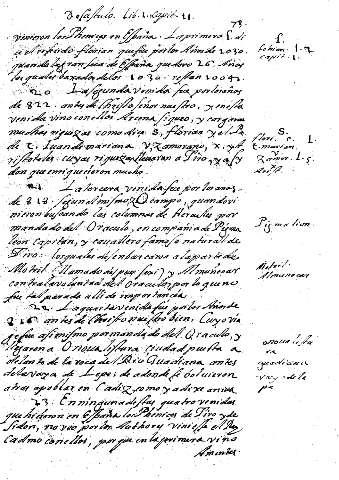 De Castulo. Lib. 1. capit. 11.
78.
vinieron los Phenices en España. La primera
a el referido florian que fue por los Años de 1030.
quando la gran seca de España quedro 26 Años
los quales baxados de los 1030. restan 1004.
20 La segunda venida fue por los años
de 822. antes de Christo señor nuestro, y en esta
venida vino con ellos Archena siqueo, y cargaron
muchas riquezas como dira S, florian y el Pa
de t, Juan de mariana v, Zamorano, x, y A
ristoteles. cuyas riquezas llevaron a Tiro,
don que enriquecieron mucho.
21 La tercera venida fue por los años
de 818. segun el mismo Ocampo, quando vi
nieron buscando las columnas de Hercules por
mandado del Oraculo, en compañia de Pigma
leon capitan, y cavallero famoso natural de
Tiro: los quales desenbarcaron a la parte de
Motril (llamado despues Sexi) y Almuñecar
contra la voluntad del Oraculo, por lo que no
fue tal parada alli de importancia.
22 La quarta venida fue por los Años de
216 antes de Christo nuestro bien. Cuyo via
fue asi mismo por mandado del Oraculo, y
llegaron a Onoua listura ciudad puesta a
delante de la voca del Rio Guadiana, antes
de la voca de Lepe: de adonde se bolvieron
atras a poblar en Cadiz como ya dixe arriva.
23. En ninguna destas quatro venidas
que hicieron en España los Phenices de Tiro y de
Sidon, no vio por los Authores viniese el Rey
Cadmo con ellos, porque en la primera vino
Amontes
florian. 1. 2
capit. 1.
flori. S.
t. marian
v.
Zamor. 1. 5.
Pigmalion.
Motril.
Almuñecar
onoua listu
ra
guadiana
voz de le
pe